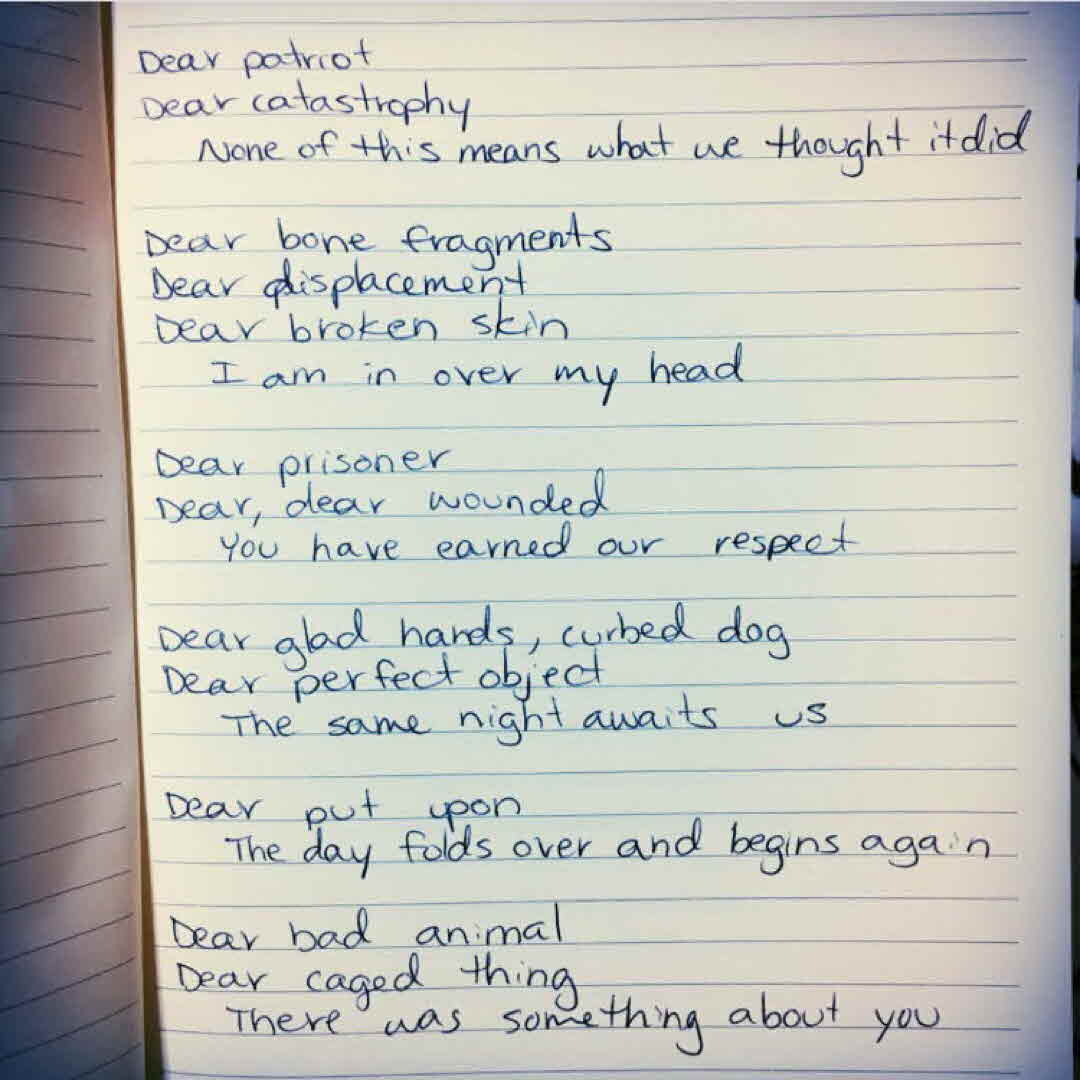 Dear patriot
Dear catastrophy
None of this means what we thought it did
Dear bone fragments
Dear displacement
Dear broken skin
I am in over my head
Dear prisoner
Dear, dear wounded
You have earned our respect
Dear glad hands, curbed dog
Dear perfect object
The same night awaits us
Dear put upon
The day folds over and begins again
Dear bad animal
Dear caged thing
There was something about you